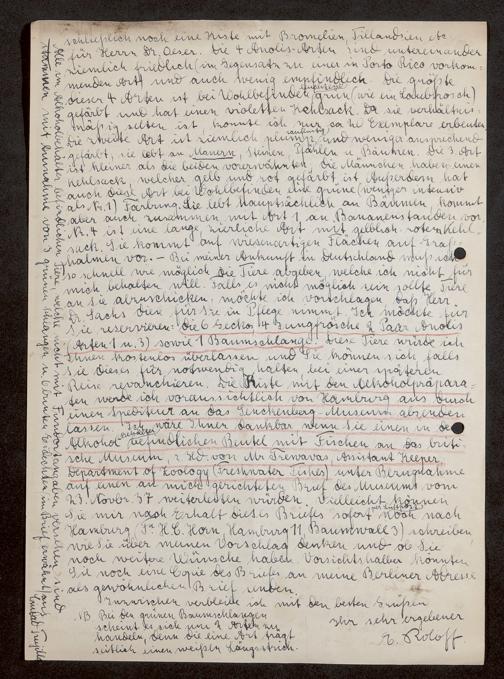 schließlich noch eine Kiste mit Bromelien, Tillandsien etc
für Herrn Dr. Oeser. Die 4 Anolis-Arten sind untereinander
ziemlich friedlich (im Gegensatz zu einer in Porto Rico vorkom-
menden Art) und auch wenig empfindlich. Die größte
dieser 4 Arten ist bei Wohlbefinden grün (wie ein Laubfrosch)
gefärbt und hat einen violetten Kehlsack. Da sie verhältnis-
mäßig selten ist, konnte ich nur Exemplare erbeuten
die zweite Art ist ziemlich plump und weniger ansprechend
gefärbt, sie lebt an Mauern, Steinen, Pfählen u. Bäumen. Die 3. Art
ist kleiner als die beiden vorerwähnten. Die Männchen haben einen
Kehlsack, welcher gelb und rot gefärbt ist. Außerdem hat
auch diese Art bei Wohlbefinden eine grüne (weniger intensiv
als Nr. 1) Färbung. Sie lebt hauptsächlich an Bäumen, kommt
aber auch zusammen mit Art 1 an Bananenstauden vor.
Nr. 4 ist eine lange, zierliche Art mit gelblich-rotem Kehl-
sack. Sie kommt auf wiesenartigen Flächen auf Gras-
halmen vor. – Bei meiner Ankunft in Deutschland muß ich
so schnell wie möglich die Tiere abgeben, welche ich nicht für
mich behalten will. Falls es nicht möglich sein sollte, Tiere
an Sie abzuschicken, möchte ich vorschlagen, daß Herr
Dr. Sachs diese für Sie in Pflege nimmt. Ich möchte für
Sie reservieren: die 6 Geckos, 4 Jungfrösche, 2 Paar Anolis
(Arten 1 u. 3) sowie 1 Baumschlange. Diese Tiere würde ich
Ihnen kostenlos überlassen und Sie können sich, falls
Sie dieses für notwendig halten bei einer späteren
Reise revanchieren. Die Kiste mit den Alkoholpräpara-
ten werde ich voraussichtlich von Hamburg aus durch
einen Spediteur an das Senckenberg-Museum absenden
lassen. Ich wäre Ihnen dankbar wenn Sie einen in dem
Alkoholbehälter befindlichen Beutel mit Fischen an das briti-
sche Museum, z. Hd. von Mr Trewavas, Assistant Keeper,
Department of Zoology (Freshwater Fishes) unter Bezugnahme
auf einen an mich gerichteten Brief des Museums vom
23. Novbr 37 weiterleiten würden. Vielleicht können
Sie mir nach Erhalt dieses Briefes sofort per Luftpost noch nach
Hamburg (H. C. Horn, Hamburg 11, Baumwall 3) schreiben,
wie Sie über meinen Vorschlag denken und ob Sie
noch weitere Wünsche haben. Vorsichtshalber könnten
Sie noch eine Copie des Briefes an meine Berliner Adresse
als gewöhnlichen Brief senden.
Inzwischen verbleibe ich mit den besten Grüßen
Ihr sehr ergebener
E. Roloff
NB. Bei den grünen Baumschlangen
scheint es sich um 2 Arten zu
handeln, denn die eine Art trägt
seitlich einen weißen Längsstrich.
Alle im Alkoholbehälter befindlichen Tiere welche nicht mit Fundortangaben versehen sind
stammen mit Ausnahme von 3 grünen Schlangen u. Eidechsen im Brief erwähnt aus